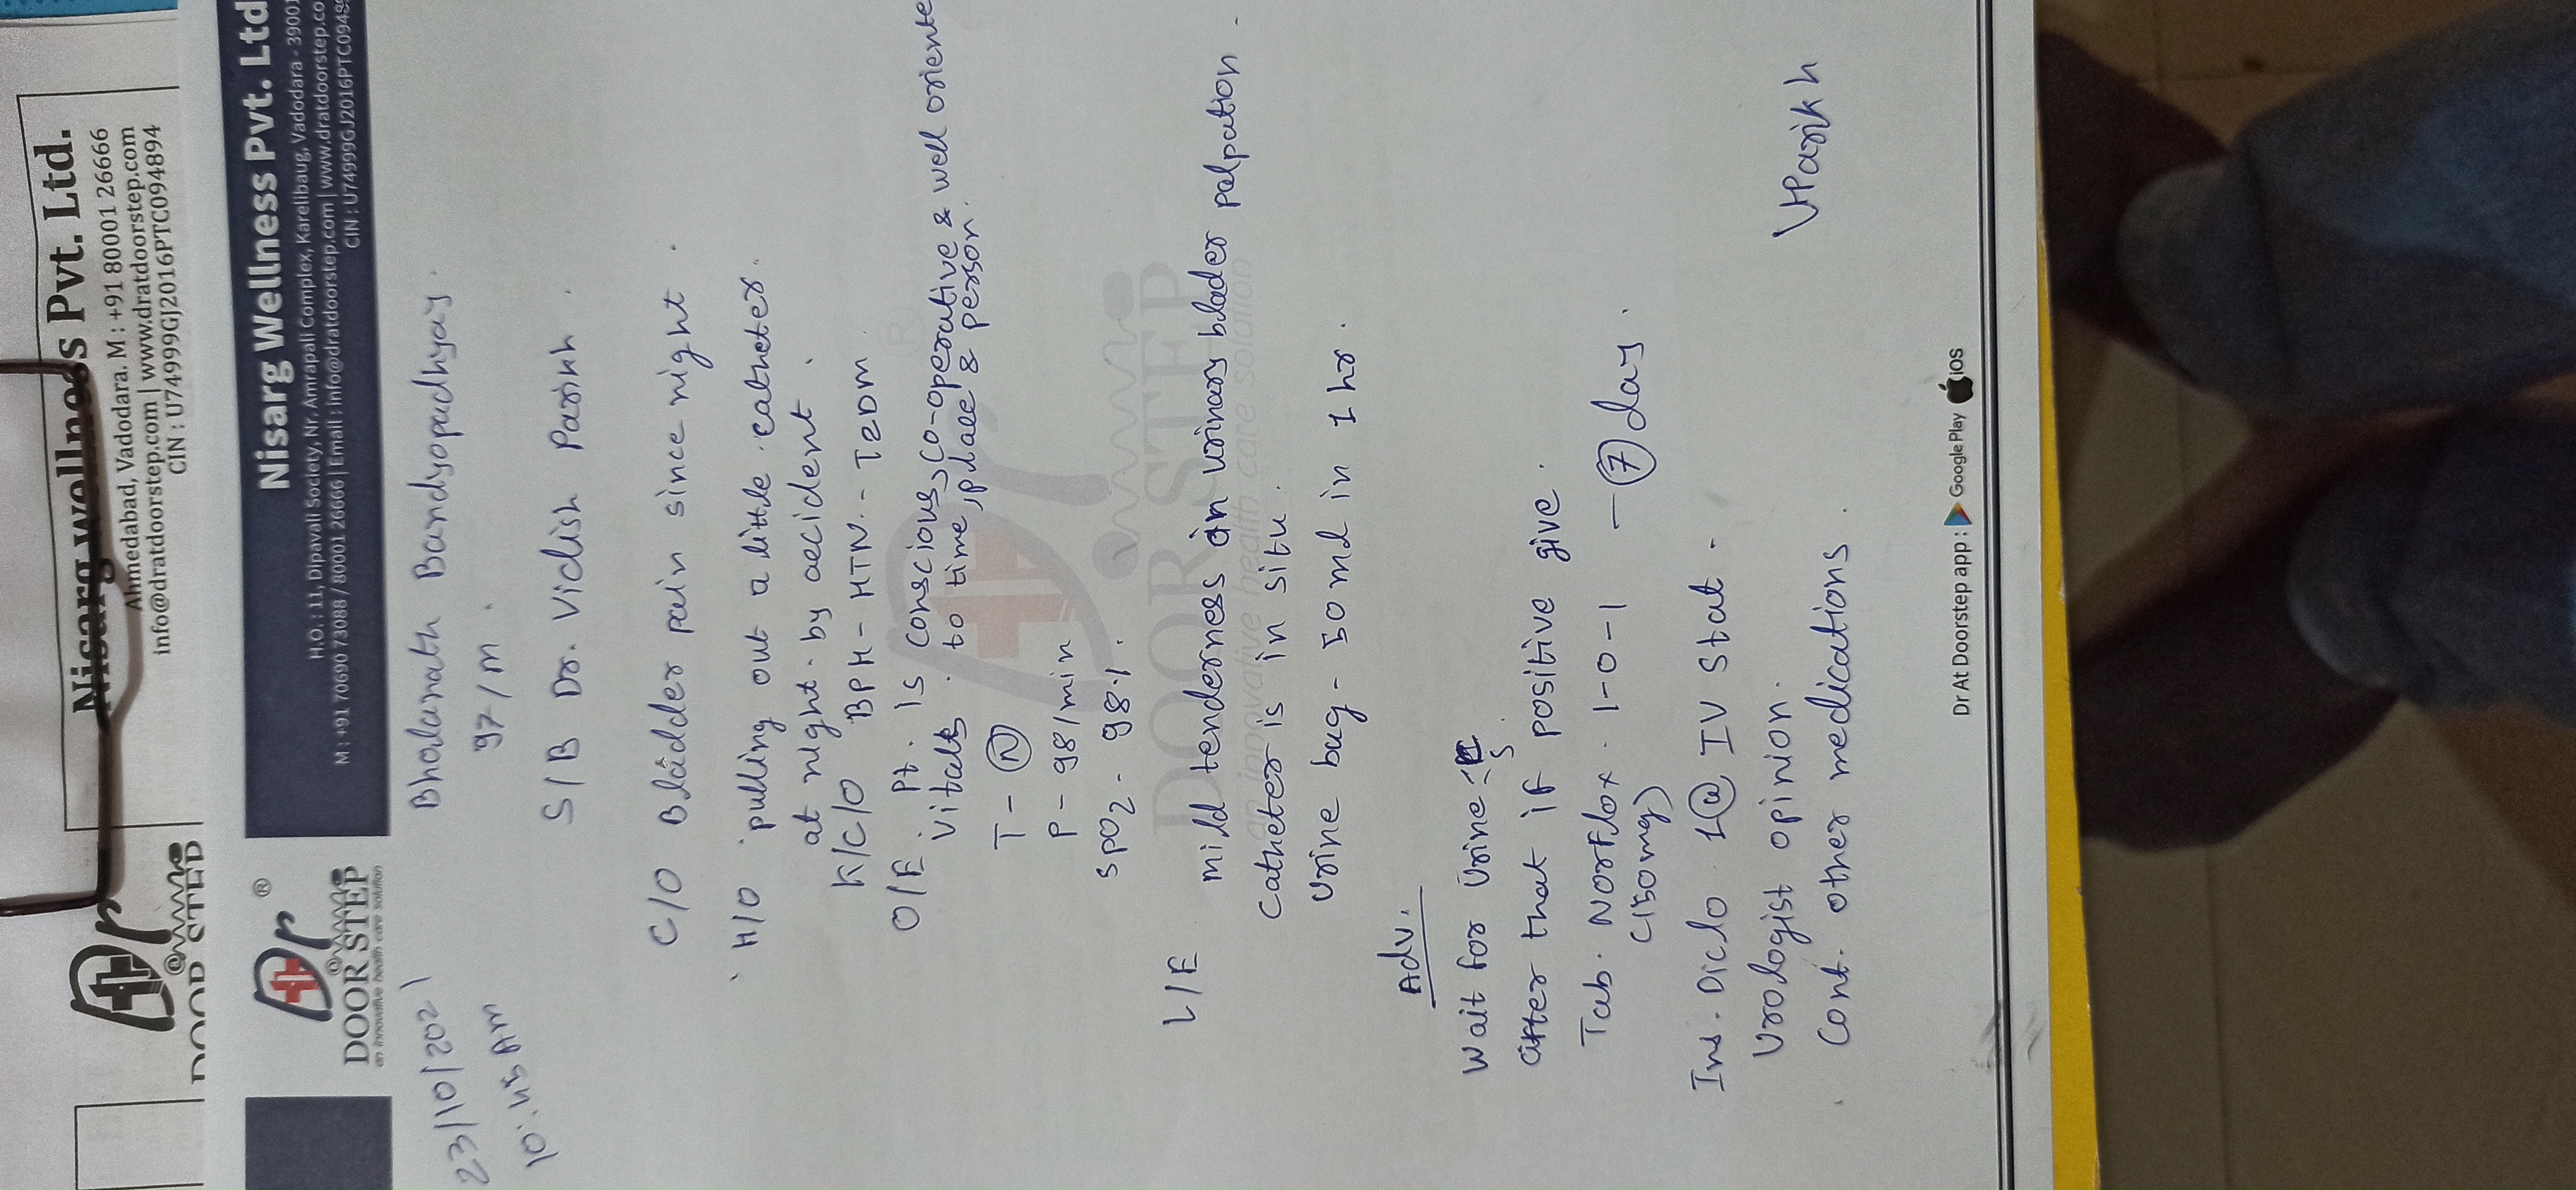 Dr
Nisarg wellness Pvt. Ltd.
Ahmedabad, Vadodara. M : +91 80001 26666
info@dratdoorstep.com | www.dratdoorstep.com
CIN : U74999GJ2016PTC094894
DOOR STEP
Dr ®
DOOR STEP
an innovative health care solution
Nisarg Wellness Pvt. Ltd
H.O. : 11, Dipavali Society, Nr. Amrapali Complex, Karelibaug, Vadodara - 39001
M : +91 70690 73088 / 80001 26666 | Email : info@dratdoorstep.com | www.dratdoorstep.co
CIN : U74999GJ2016PTC0948
23/10/2021
10:45 AM
Bholanath Bandyopadhyay.
97/M.
S/B Dr. Vidish Parikh.
C/O Bladder pain since night.
H/O pulling out a little catheter.
at night by accident.
K/C/O BPH - HTN - T2DM
O/E. Pt. Is conscious, co-operative & well oriente
to time, place & person.
Vitals
T - N
P - 98/min
SPO2 - 98%.
L/E
mild tenderness in urinary blader palpation.
Catheter is in situ.
Urine bag - 50 ml in 1 hr.
Adv.
Wait for Urine
after that if positive give.
Tab. Norflox 1-0-1 - 7 day.
(150mg)
Inj. Diclo 1@ IV Stat.
Urologist opinion.
Cont. other medications.
VParikh
Dr
DOOR STEP
an innovative health care solution
Dr At Doorstep app : Google Play iOS